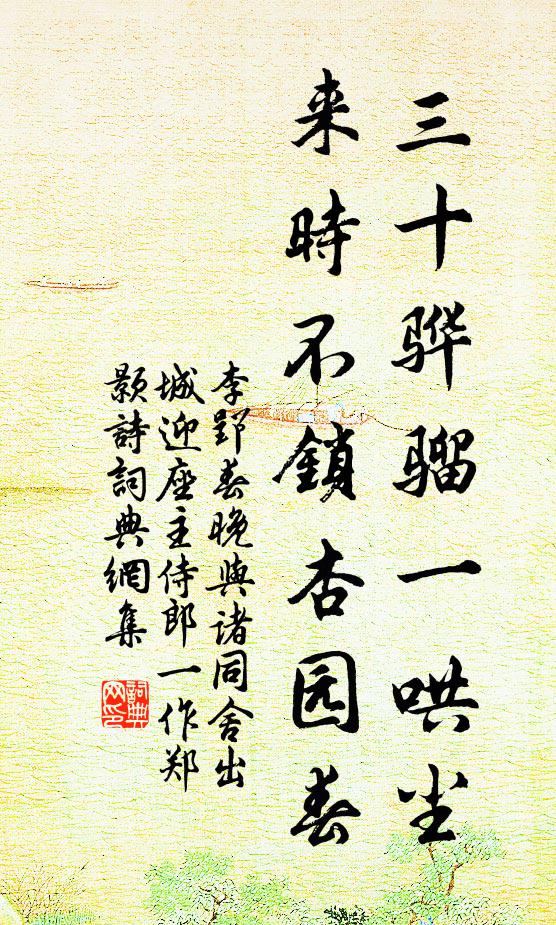 三十骅骝一哄尘
来時不鎖杏园春
李郢春晚與諸同舍出
城迎座主侍郎一作郑
颢詩詞典網集
詞典
网印